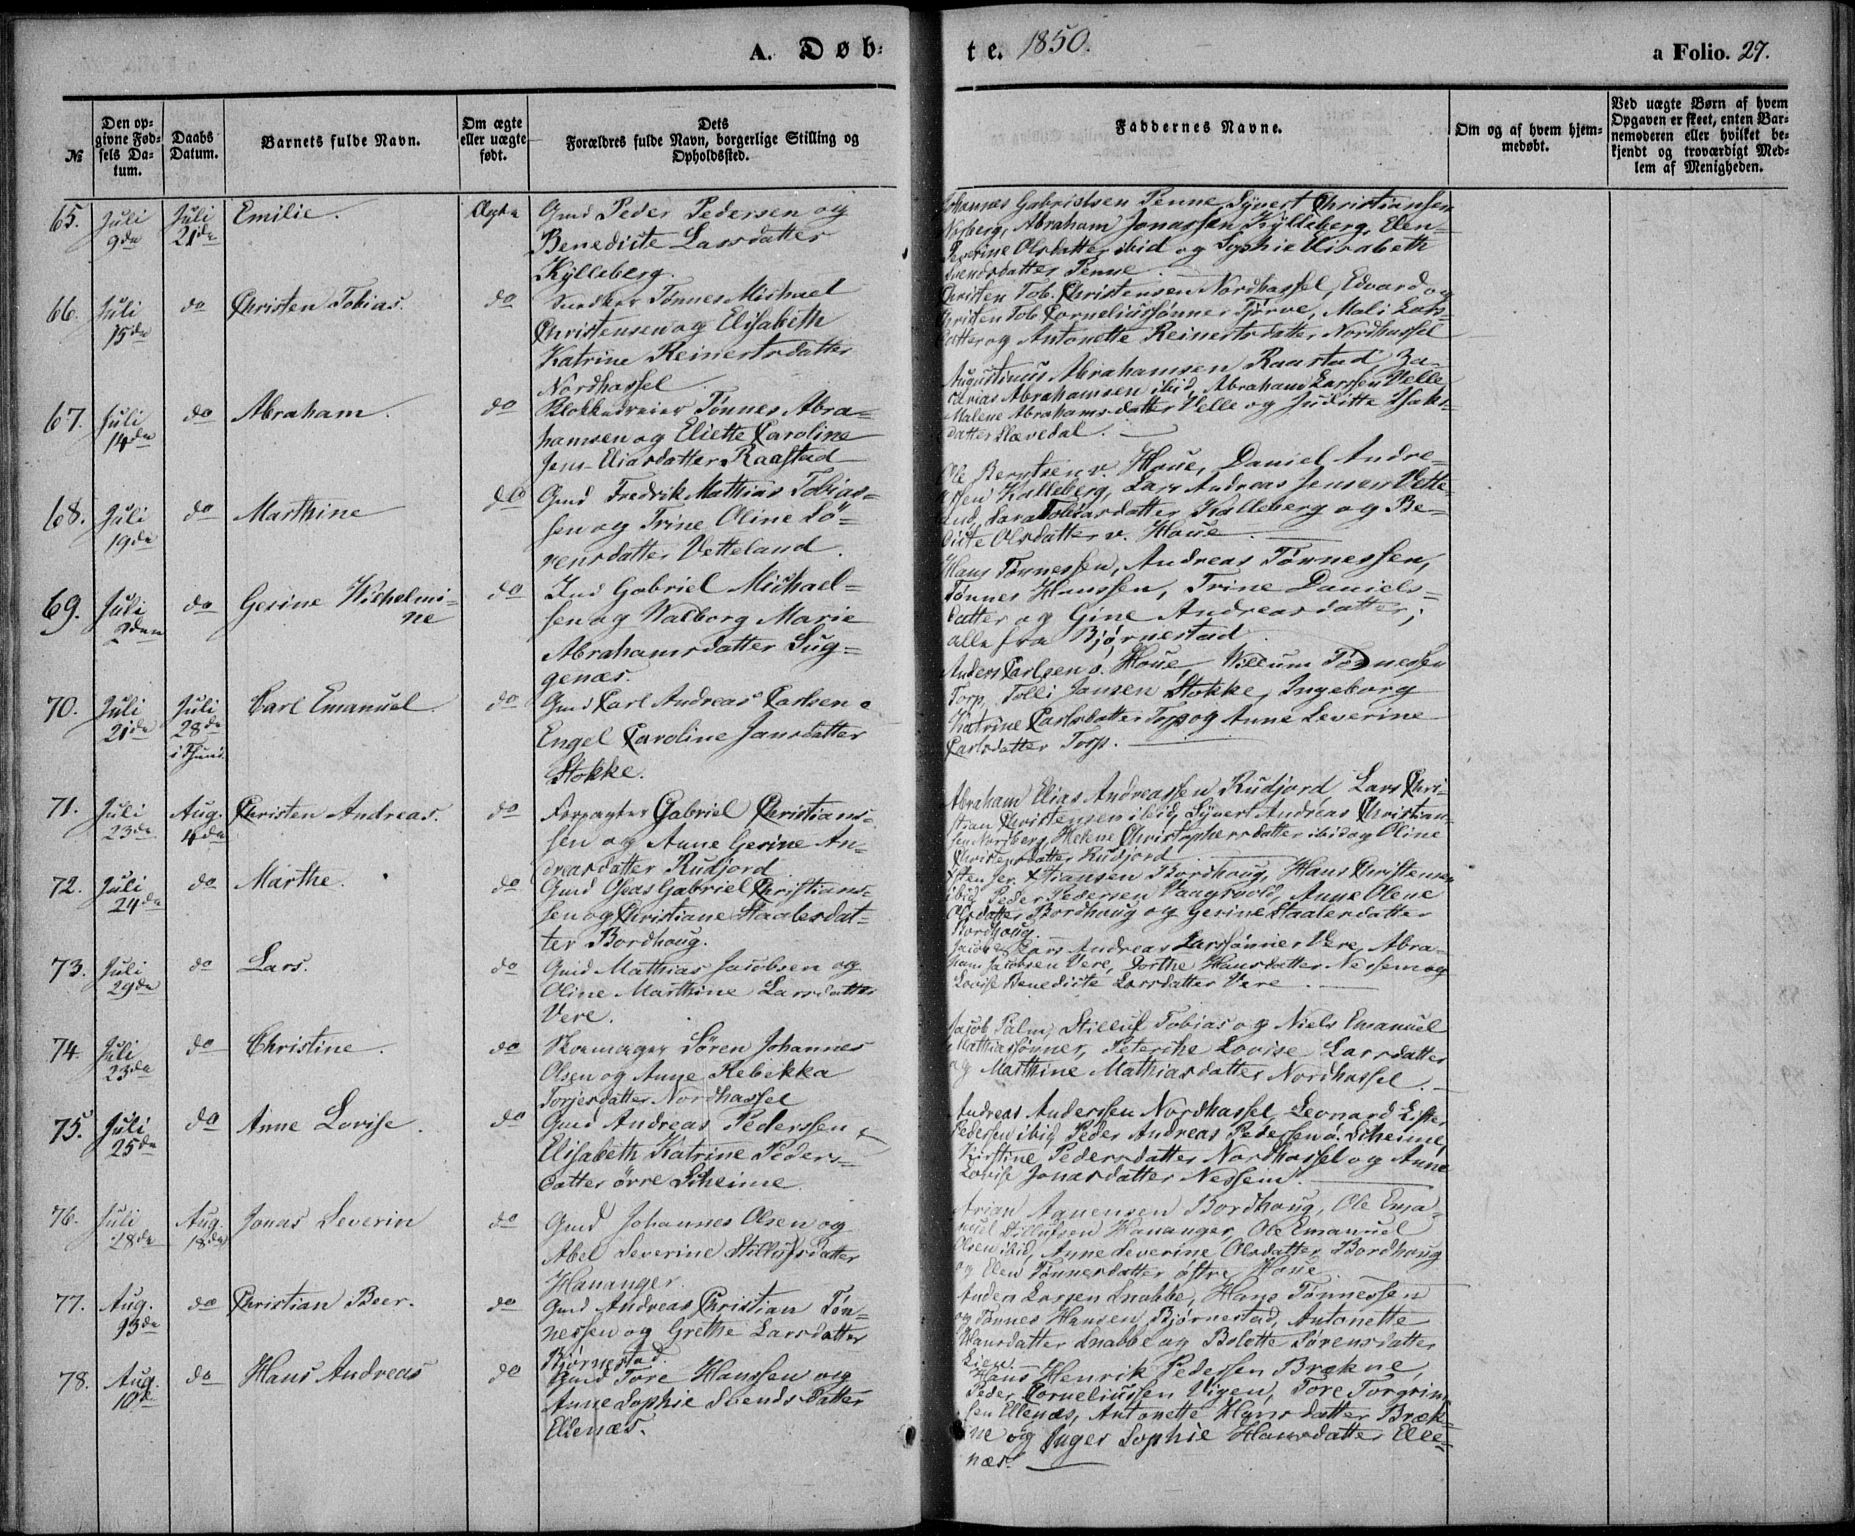 A. Døb- te. 1850. a Folio. 27.
№
Den op-
givne Fød-
sels Da-
tum.
Daabs
Datum.
Barnets fulde Navn.
Om ægte
eller uægte
født.
Dets
Forældres fulde Navn, borgerlige Stilling og
Opholdssted.
Faddernes Navne.
Om og af hvem hjem-
medøbt.
Ved uægte Børn af hvem
Opgaven er skeet, enten Bar-
nemoderen eller hvilket be-
kjendt og troværdigt Med-
lem af Menigheden.
65. Juli 9de Juli 21de Emilie. Ægte
Gmd Peder Pedersen og
Benedicte Larsdatter
Kylleberg.
Johannes Gabrielsen Penne, Syvert Christiansen
Abraham Jonassen Kylleberg, Elen
Severine Olsdatter ibid og Sophie Elisabeth
Svendsdatter Penne.
66. Juli 15de do Christen Tobias. do
Tønnes Michael
Christensen og Elisabeth
Katrine Reinertsdatter
Nordhassel.
Christen Tob. Christensen Nordhassel, Edvard og
Christen Tob. Corneliussønner Tjørve, Mali Lars-
datter og Antonette Reinertsdatter Nordhassel
67. Juli 14de do Abraham. do
Blokkedreier Tønnes Abra-
hamsen og Eliette Caroline
Jens Eliasdatter Raastad
Augustinus Abrahamsen Raastad, Za-
carias Abrahamsen ibid, Abraham Larssen Velle,
Malene Abrahamsdatter Velle og Juditte Isaks-
datter Slævedal.
68. Juli 19de do Marthine do
Gmd Fredrik Mathias Tobias-
sen og Trine Oline Sö-
rensdatter Vetteland.
Ole Berntsen v. Houe, Daniel Andre-
assen Kalleberg, Lars Andreas Jensen Vette-
land, Sara Tobiasdatter Kalleberg og Be-
dicte Olsdatter v. Houe.
69. Juli 9den do Gesine Wilhelmi-
ne do
Ind Gabriel Michael-
sen og Walborg Marie
Abrahamsdatter Lug-
genæs.
Hans Tønnessen, Andreas Tønnessen,
Tønnes Hanssen, Trine Daniels-
datter og Gine Andreasdatter,
alle fra Bjørnestad.
70. Juli 21de Juli 28de Carl Emanuel do
Gmd Carl Andreas Carlsen &
Engel Caroline Jansdatter
Stokke.
Anders Carlsen ö. Houe, Villum Tønnessen
Torp, Tolli Jansen Stokke, Ingeborg
Katrine Carlsdatter Torp og Anne Severine
Carlsdatter Torp.
71. Juli 23de Aug. 4de Christen Andreas. do
Forpagter Gabriel Christians-
sen og Anne Gesine An-
dreasdatter Rudjord
Abraham Elias Andreassen Rudjord, Lars Chri-
stian Christensen ibid, Syvert Andreas Christian-
sen, Helene Christophersdatter ibid og Oline
Christensdatter Rudjord.
72. Juli 24de do Marthe. do
Gmd Oseas Gabriel Christians-
sen og Christiane Staalesdat-
ter Bordhoug.
Xstiansen Bordhoug, Hans Christensen
ibid, Peder Pedersen Vaagsvold, Anne Olene
Olsdatter Bordhoug og Gesine Staalesdatter
Bordhoug.
73. Juli 29de do Lars. do
Gmd Mathias Jacobsen og
Oline Marthine Larsdatter
Vere.
Jacob & Lars Andreas Larssønner Vere, Abra-
ham Jacobsen Vere, Dorthe Hansdatter Nessem og
Lovise Benedicte Larsdatter Vere.
74. Juli 23de do Christine. do
Skomager Sören Johannes
Olsen og Anne Rebekka
Torjersdatter Nordhassel
Jacob Palm, Stilluf Tobias og Niels Emanuel
Mathiassønner, Petersche Lovise Larsdatter
og Marthine Mathiasdatter Nordhassel.
75. Juli 25de do Anne Lovise. do
Gmd Andreas Pederssen &
Elisabeth Katrine Peders-
datter övre Skeime
Andreas Anderssen Nordhassel, Leonard Lister
Pedersen ibid, Peder Andreas Pedersen ö. Skeime,
Kirstine Pedersdatter Nordhassel og Anne
Lovise Jonasdatter Nessem.
76. Juli 28de Aug. 18de Jonas Severin do
Gmd Johannes Olsen og
Abel Severine Stillufsdatter
Hananger.
Arian Agnensen Bordhoug, Ole Ema-
nuel Stillufsen Hananger, Ole Emanuel
Olsen ibid, Anne Severine Olsdatter Bordhoug
og Elen Tønnesdatter östre Houe.
77. Aug. 13de do Christian Beer. do
Gmd Andreas Christian Tøn-
nessen og Grethe Larsdatter
Bjørnestad.
Anders Larsen Snabbe, Hans Tønnessen
og Tønnes Hansen Bjørnestad, Antonette
Hansdatter Snabbe og Bolette Sørensdatter
Lien.
78. Aug. 10de do Hans Andreas do
Gmd Tore Hanssen og
Anne Sophie Svendsdatter
Ellenæs.
Hans Henrik Pederssen Brækne,
Peder Corneliussen Vigen, Tore Torgrim-
sen Ellenæs, Antonette Hansdatter Bræk-
ne og Inger Sophie Hansdatter Elle-
næs.